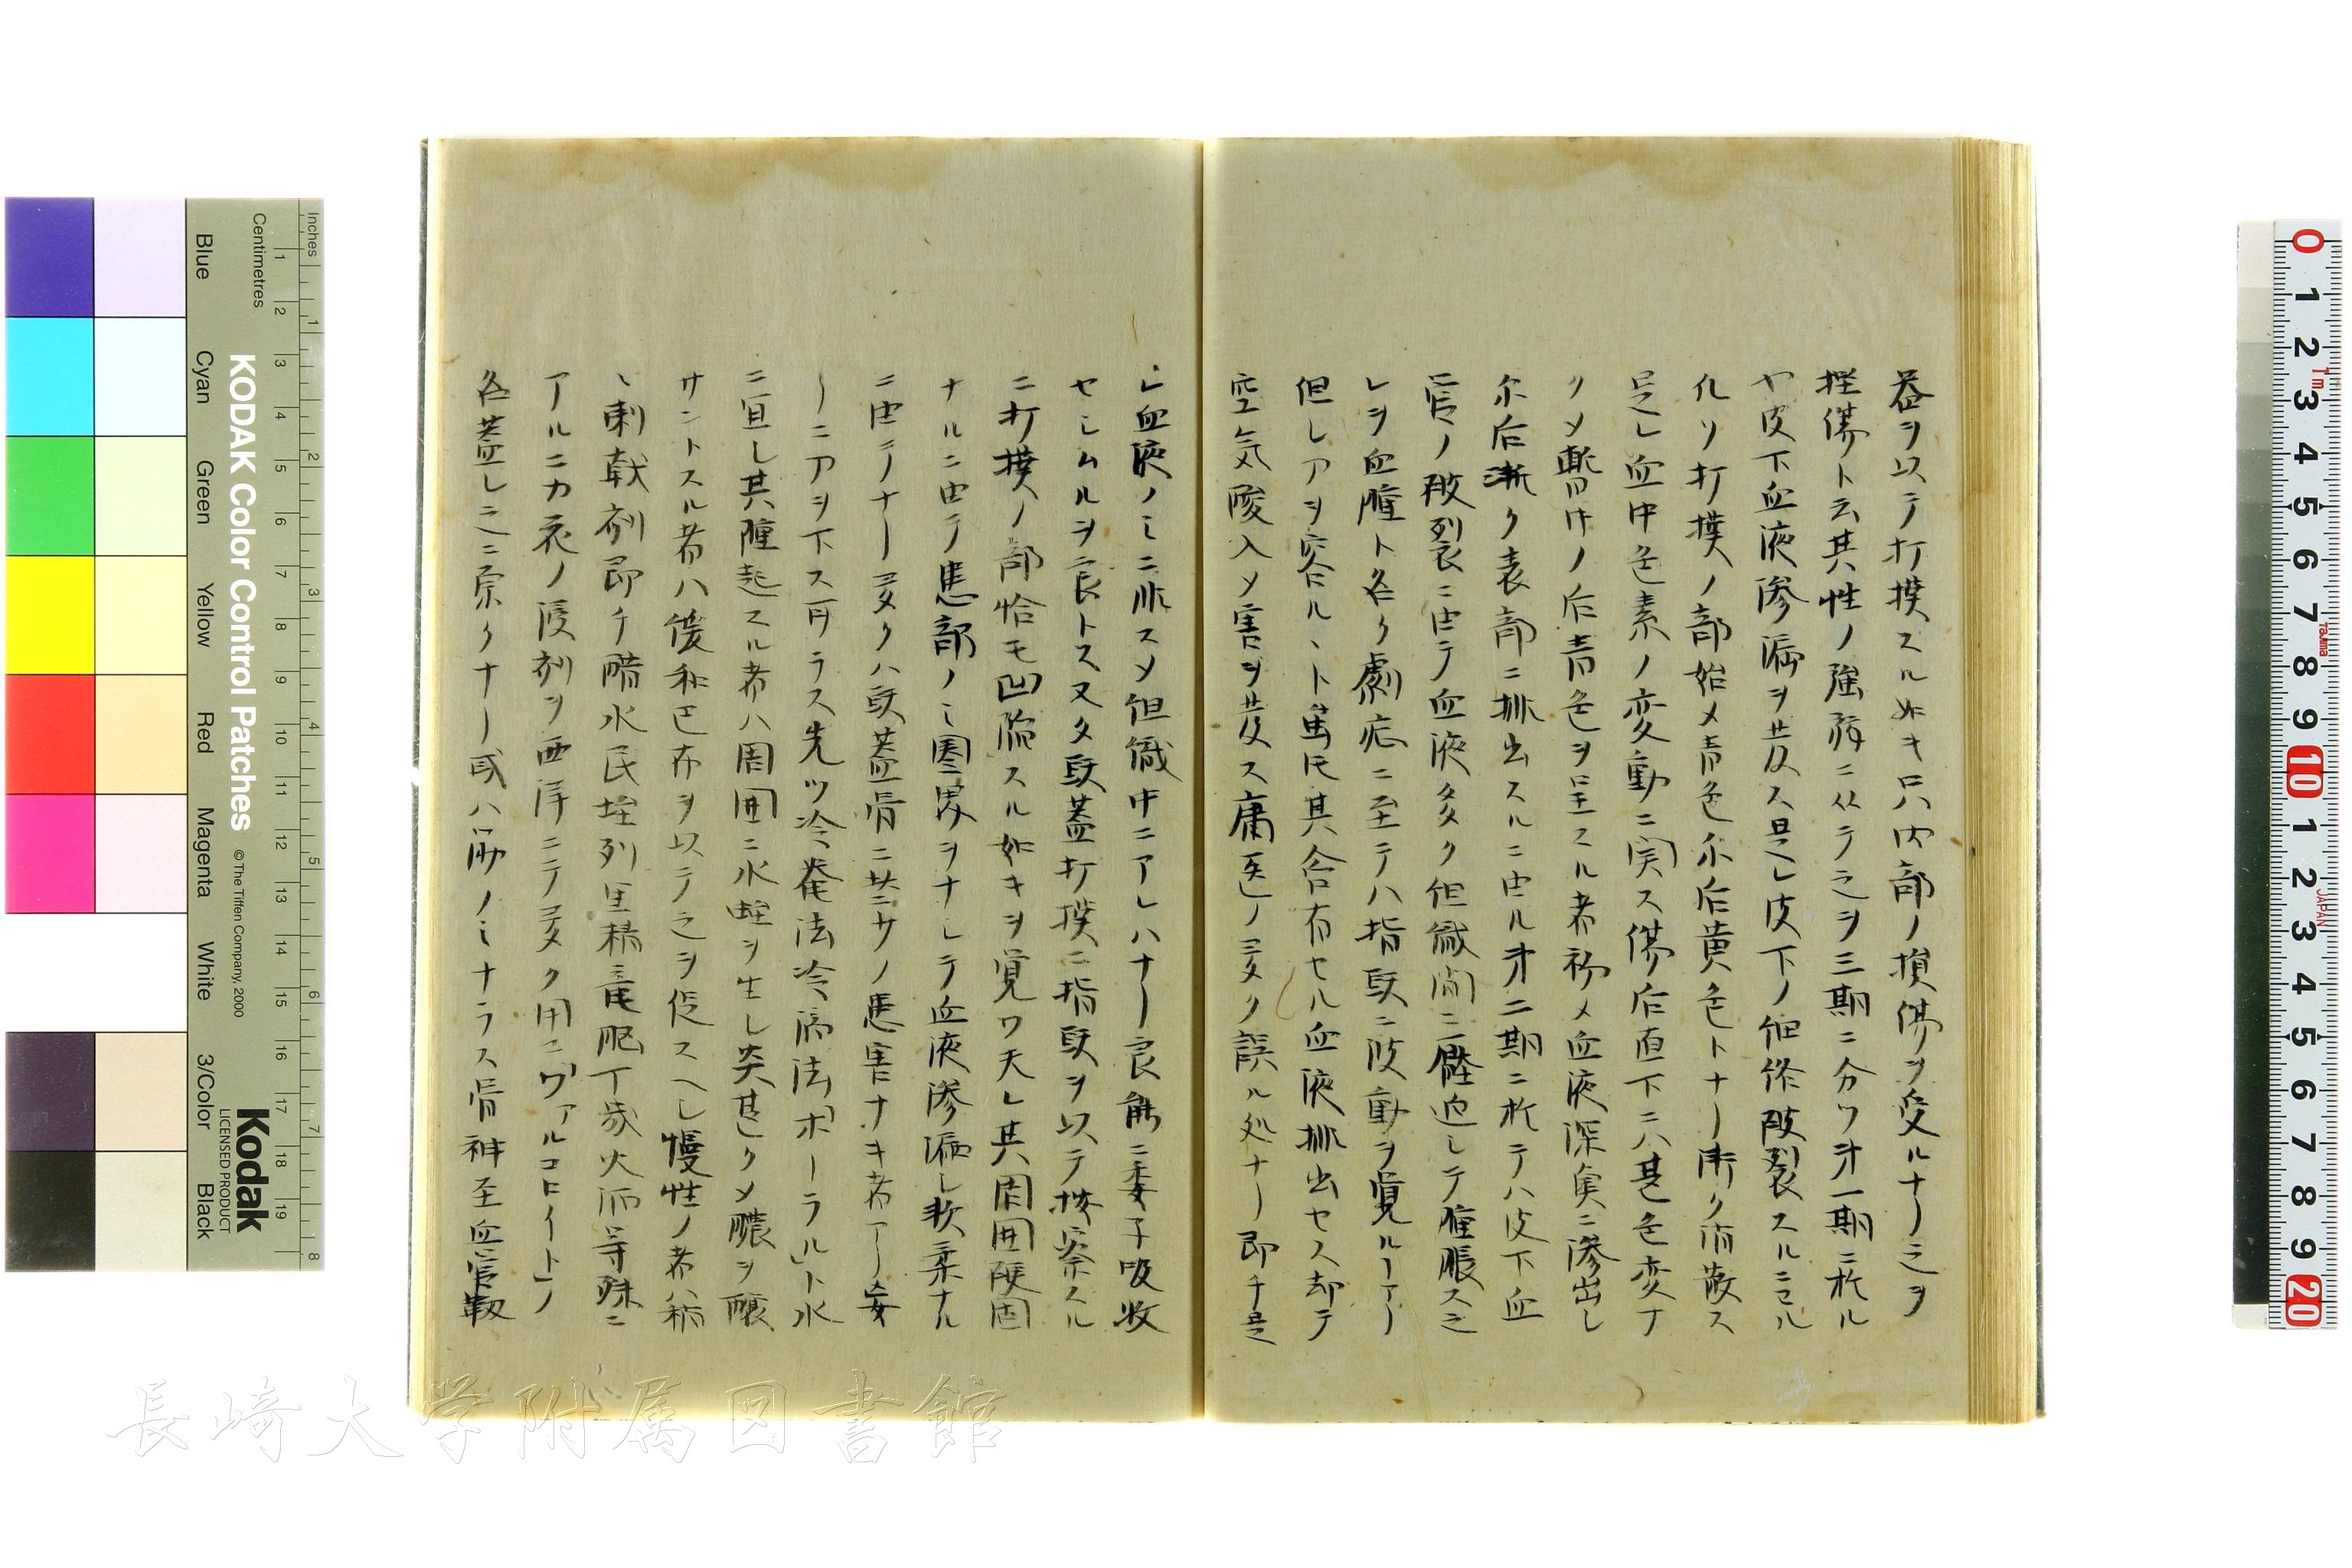 器ヲ以テ打撲スル如キ只内部ノ損傷ヲ受ルナ丨之ヲ
挫傷ト云其性ノ強弱ニ从テ之ヲ三期ニ分ワ才一期ニ於ル
ヤ皮下血液滲漏ヲ発ス是レ皮下ノ破裂スルニヨル
化ソ打撲ノ部始メ青色尓后黄色トナ丨漸ク消散ス
是レ血中色素ノ変動ニ関ス傷后直下ニハ甚色変ナ
クメ暫時ノ后青色ヲ呈スル者初メ血液深奥ニ滲出し
尓后漸ク表部ニ排出スルニ由ル才二期ニ於テハ皮下血
管ノ破裂ニ由テ血液多ク但織間ニ壓迫シテ腫脹ス之
レヲ血腫ト名ク劇症ニ至テハ指頭ニ波動ヲ覚ルヿア丨
但レアヲ容ルヽト雖モ其含有セル血液排出セス却テ
空気竣入メ害ヲ発ス庸医ノ多ク誤ル処ナ丨即チ是
レ血液ノミニ非スメ但織中ニアレハナ丨良能ニ委子吸收
セしムルヲ良トス又タ頭蓋打撲ニ指頭ヲ以テ按察スル
ニ打撲ノ部恰モ凹陥スル如キヲ覚ワ夭レ其周囲硬固
ナルニ由テ患部ノミ圏界ヲナシテ血液滲漏し軟柔ナル
ニ由テナ丨多クハ頭蓋骨ニ其サノ患害ナキ者ア丨妄
丨ニアヲ下ス可ラス先ツ冷罨法冷滴法「ポーラル」ト水
ニ宜し其腫起スル者ハ周囲ニ水蛭ヲ生し炎甚しクメ膿ヲ醸
サントスル者ハ緩和巴布ヲ以テ之ヲ促スヘし慢性ノ者ハ稍
ヽ刺戟剤即チ醋水民垤列里精竜脳丁幾火酒等殊ニ
アルニカ衣ノ浸剤ヲ西洋ニテ多ク用ユ「ヴァルコロイト」ノ
名蓋し之ニ原クナ丨或ハ筋ノミナラス骨神至血管靱
長崎大学附属図書館
KODAK Color Control Patches
© The Tiffen Company, 2000
Kodak
LICENSED PRODUCT
Inches
Centimetres
Blue
Cyan
Green
Yellow
Red
Magenta
White
3/Color
Black